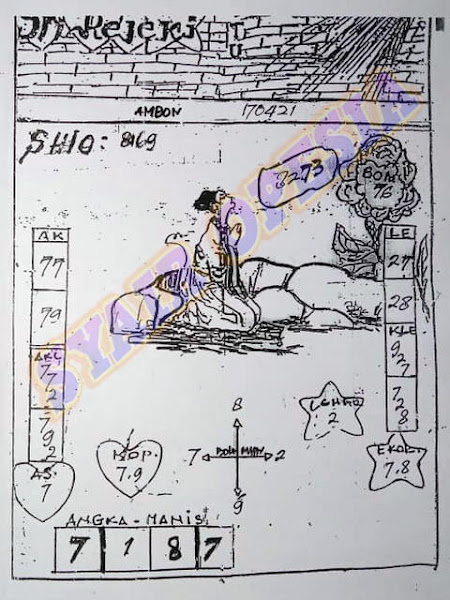 JM Rejeki
AMBON 170421
SHIO: 8169
3273
BOM
76
AK
77
79
AKC
7
7
2
7
9
2
AS
7
LE
27
28
KLE
9
2
7
7
2
8
EKOR
7.8
KOP.
7.9
2
8
7
2
9
ANGKA-MANIS
7 1 8 7
SYAIROPESIA